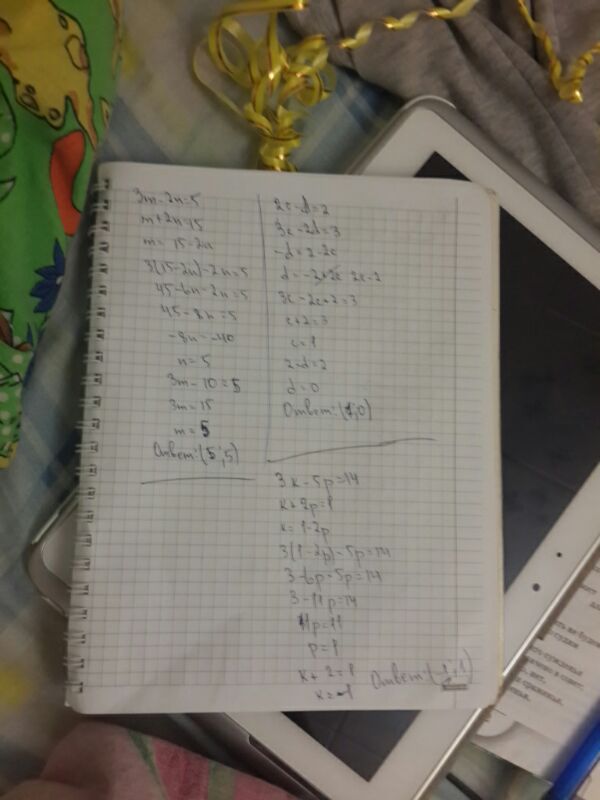 3m-2n=5
m+2n=15
m= 15-2n
3(15-2n)-2n=5
45-6n-2n=5
45-8n=5
-8n=-40
n=5
3m-10=5
3m=15
m=5
Ответ:(5;5)
2c-d=2
3c-2d=3
-d=2-2c
3c-2c+2=3
c+2=3
c=1
2-d=2
d=0
Ответ:(1;0)
3k-5p=14
k+2p=1
k=1-2p
3(1-2p)-5p=14
3-6p-5p=14
3-11p=14
11p=11
p=1
k+2=1
k=-1
Ответ(-1;1)